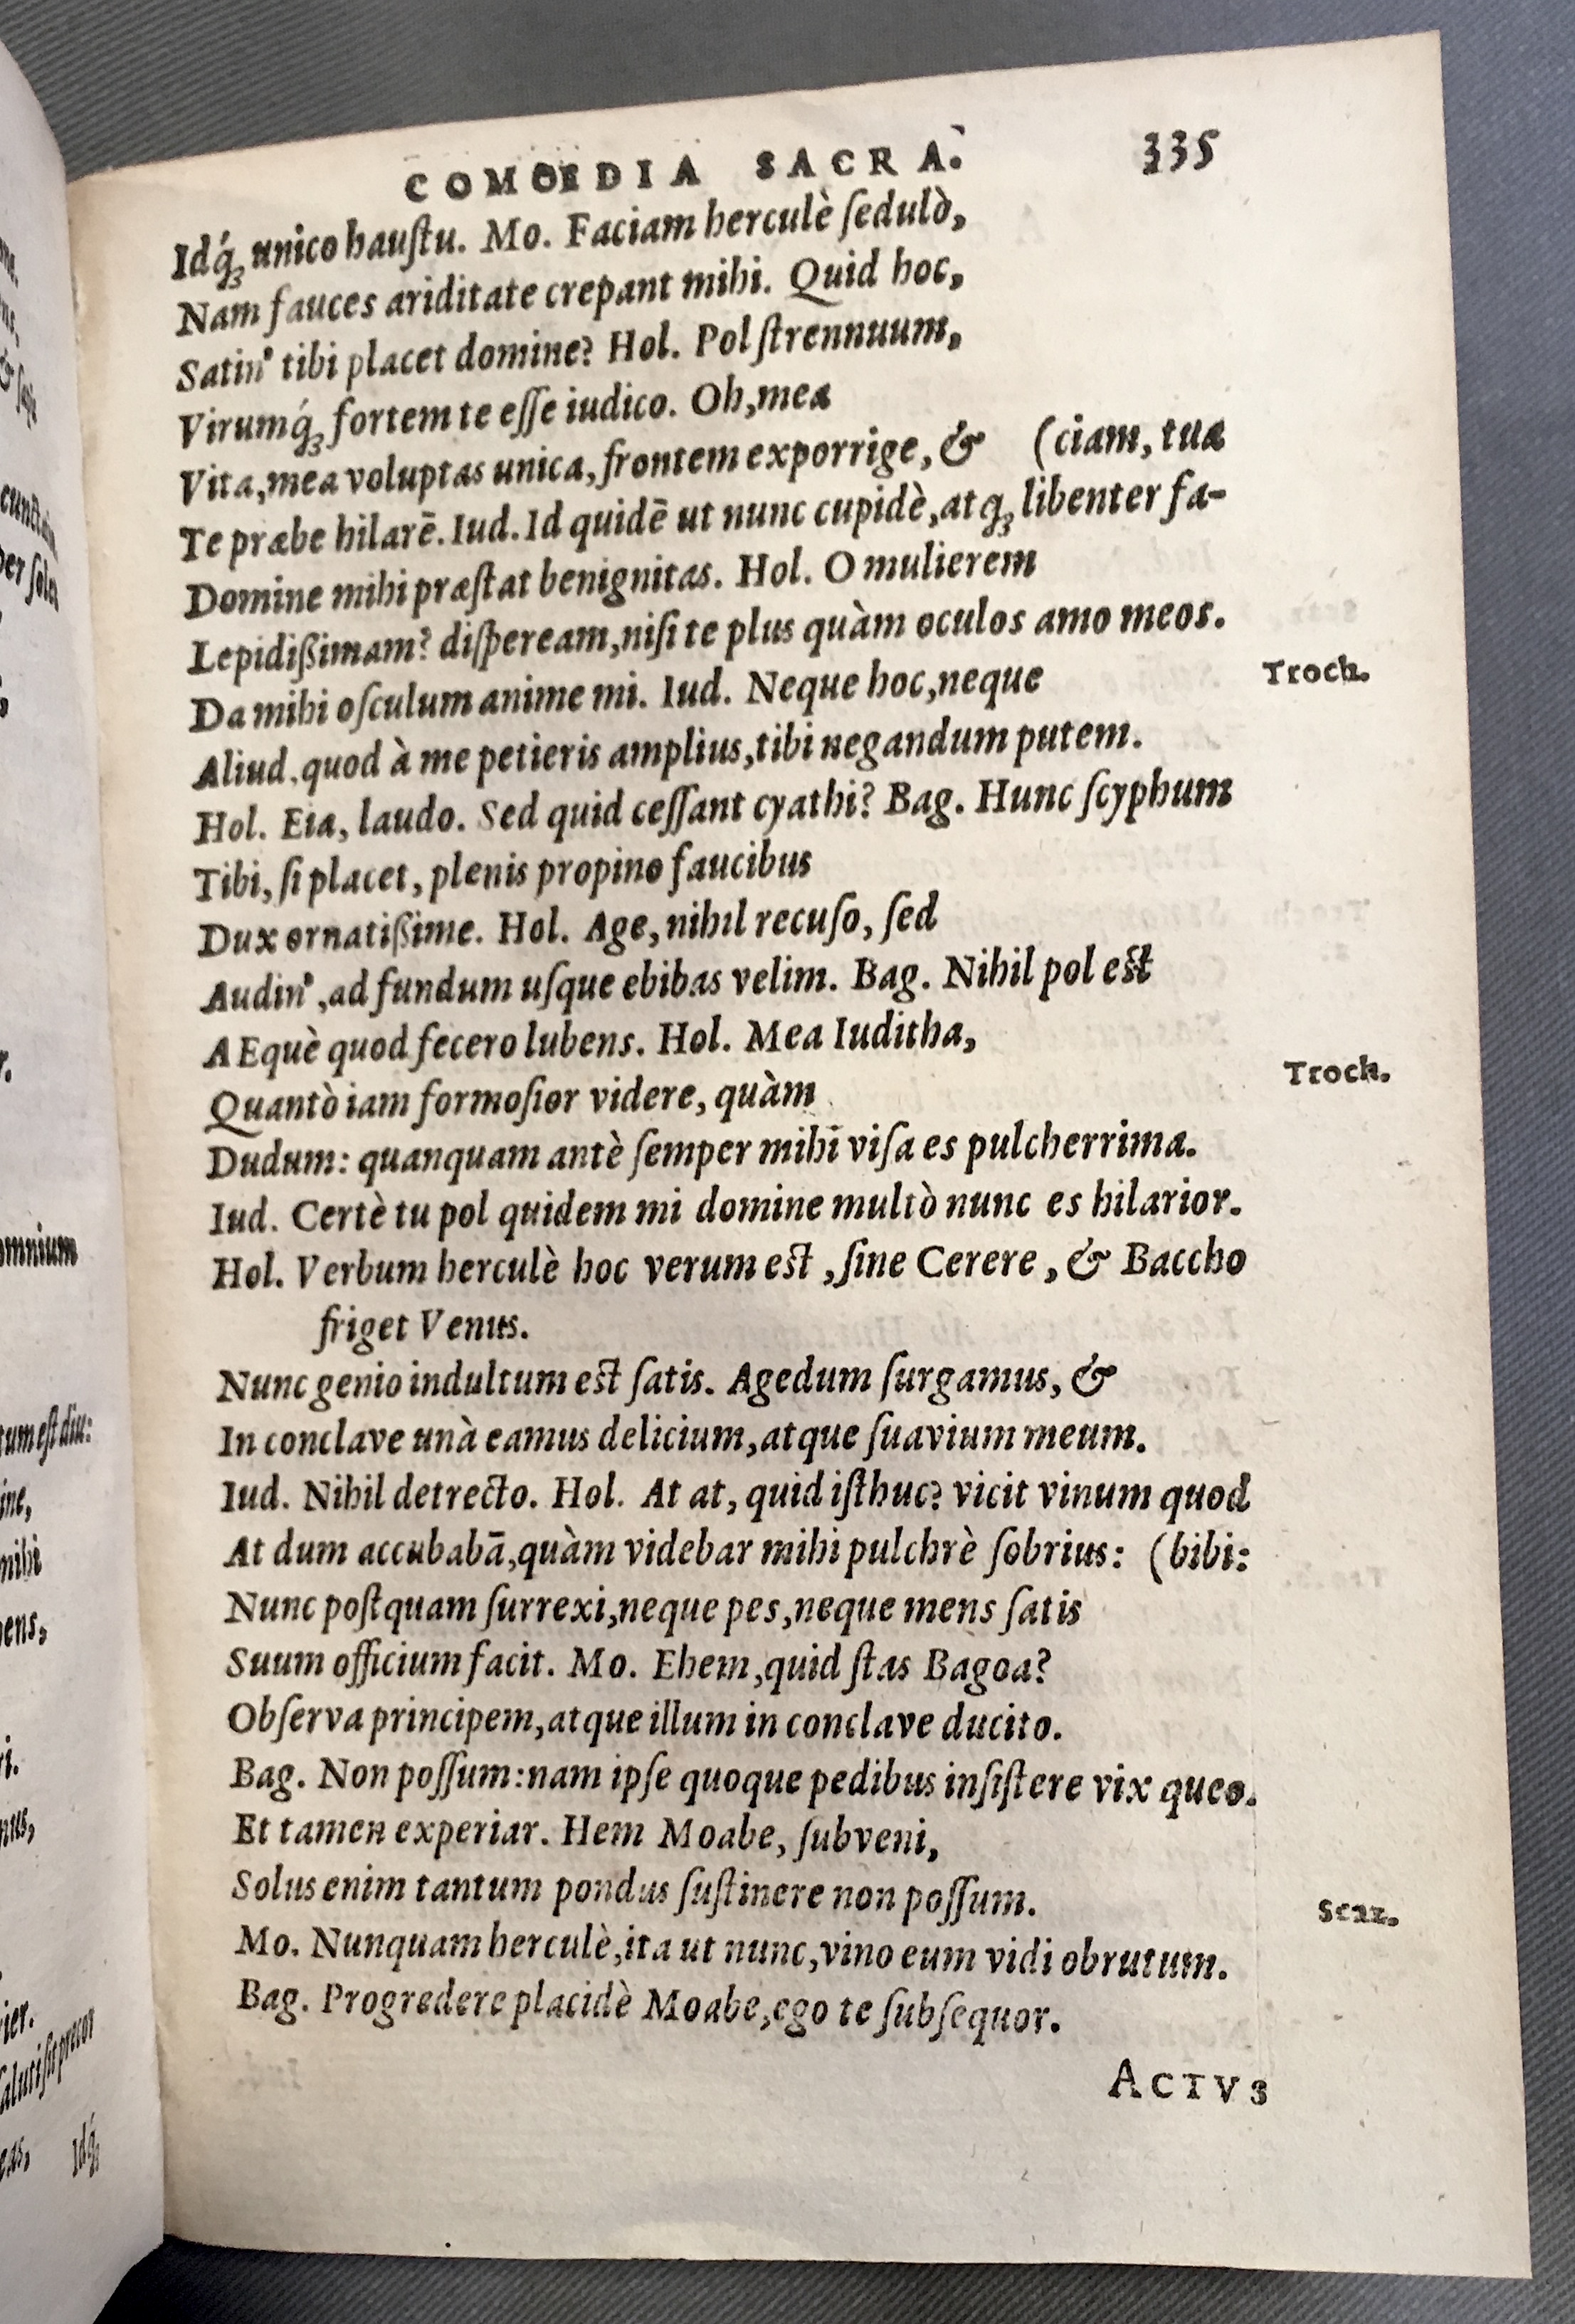 COMOEDIA SACRA. 335
Idq́ꝫ unico hauſtu. Mo. Faciam herculè ſedulò,
Nam fauces ariditate crepant mihi. Quid hoc,
Satin' tibi placet domine? Hol. Pol ſtrennuum,
Virumq́ꝫ fortem te eſſe iudico. Oh, mea
Vita, mea voluptas unica, frontem exporrige, & (ciam, tua
Te præbe hilarē. Iud. Id quidē ut nunc cupidè, atqꝫ libenter fa-
Domine mihi præſtat benignitas. Hol. O mulierem
Lepidißimam? diſpeream, niſi te plus quàm oculos amo meos.
Da mihi oſculum anime mi. Iud. Neque hoc, neque
Troch.
Aliud. quod à me petieris amplius, tibi negandum putem.
Hol. Eia, laudo. Sed quid ceſſant cyathi? Bag. Hunc ſcyphum
Tibi, ſi placet, plenis propino faucibus
Dux ornatißime. Hol. Age, nihil recuſo, ſed
Audin', ad fundum uſque ebibas velim. Bag. Nihil pol eſt
AEquè quod fecero lubens. Hol. Mea Iuditha,
Quantò iam formoſior videre, quàm
Troch.
Dudum: quanquam antè ſemper mihi viſa es pulcherrima.
Iud. Certè tu pol quidem mi domine multò nunc es hilarior.
Hol. Verbum herculè hoc verum eſt, ſine Cerere, & Baccho
friget Venus.
Nunc genio indultum eſt ſatis. Agedum ſurgamus, &
In conclave unà eamus delicium, atque ſuavium meum.
Iud. Nihil detrecto. Hol. At at, quid iſthuc? vicit vinum quod
At dum accubabā, quàm videbar mihi pulchrè ſobrius: (bibi:
Nunc poſtquam ſurrexi, neque pes, neque mens ſatis
Suum officium facit. Mo. Ehem, quid ſtas Bagoa?
Obſerva principem, atque illum in conclave ducito.
Bag. Non poſſum: nam ipſe quoque pedibus inſiſtere vix queo.
Et tamen experiar. Hem Moabe, ſubveni,
Solus enim tantum pondus ſuſtinere non poſſum.
Scaz.
Mo. Nunquam herculè, ita ut nunc, vino eum vidi obrutum.
Bag. Progredere placidè Moabe, ego te ſubſequor.
ACTVS